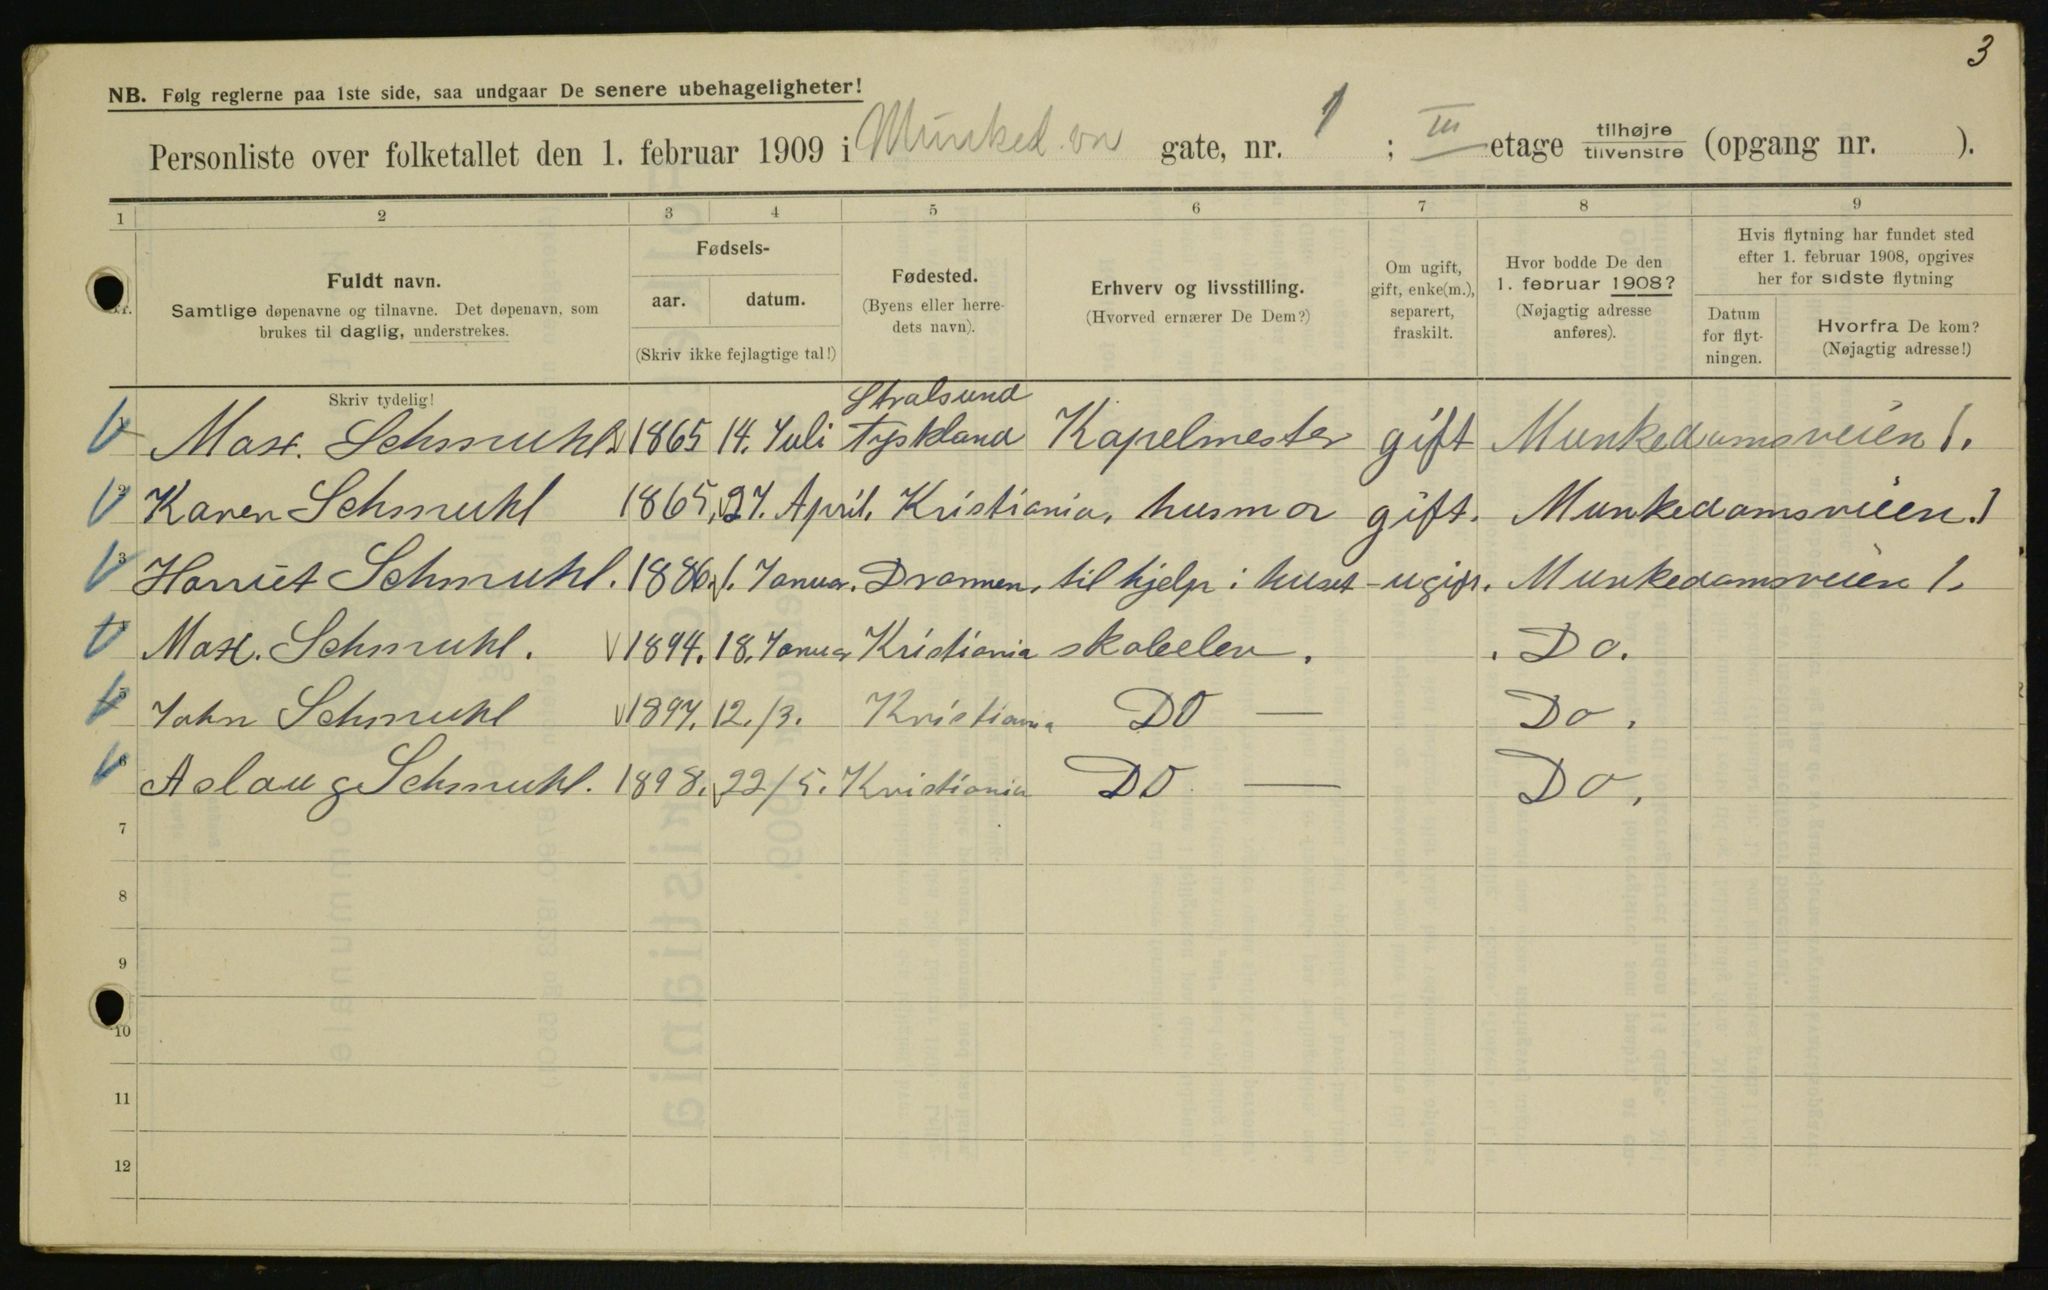 3
NB. Følg reglerne paa 1ste side, saa undgaar De senere ubehageligheter!
Personliste over folketallet den 1. februar 1909 i Munked.vn gate, nr. 1 ; III etage tilhøjre tilvenstre (opgang nr. ).
1 2 3 4 5 6 7 8 9
Fuldt navn.
Samtlige døpenavne og tilnavne. Det døpenavn, som
brukes til daglig, understrekes.
Skriv tydelig!
Fødsels-
aar. datum.
(Skriv ikke fejlagtige tal!)
Fødested.
(Byens eller herre-
dets navn).
Erhverv og livsstilling.
(Hvorved ernærer De Dem?)
Om ugift,
gift, enke(m.),
separert,
fraskilt.
Hvor bodde De den
1. februar 1908?
(Nøjagtig adresse
anføres).
Hvis flytning har fundet sted
efter 1. februar 1908, opgives
her for sidste flytning
Datum
for flyt-
ningen.
Hvorfra De kom?
(Nøjagtig adresse!)
Stralsund
Max. Schmuhl 1865 14. Juli Tyskland Kapelmester gift Munkedamsveien 1.
2 Karen Schmuhl 1865, 27. April. Kristiania, husmor gift. Munkedamsveien. 1
3 Harriet Schmuhl. 1886. 1. Januar. Drammen, til hjelp i huset - ugift. Munkedamsveien 1.
Max. Schmuhl. 1894. 18. Januar Kristiania skoleelev. Do.
5 John Schmuhl 1897. 12./3. Kristiania Do — Do.
6 Aslaug Schmuhl. 1898. 22/5. Kristiania Do — Do.
7
8
9
10
11
12